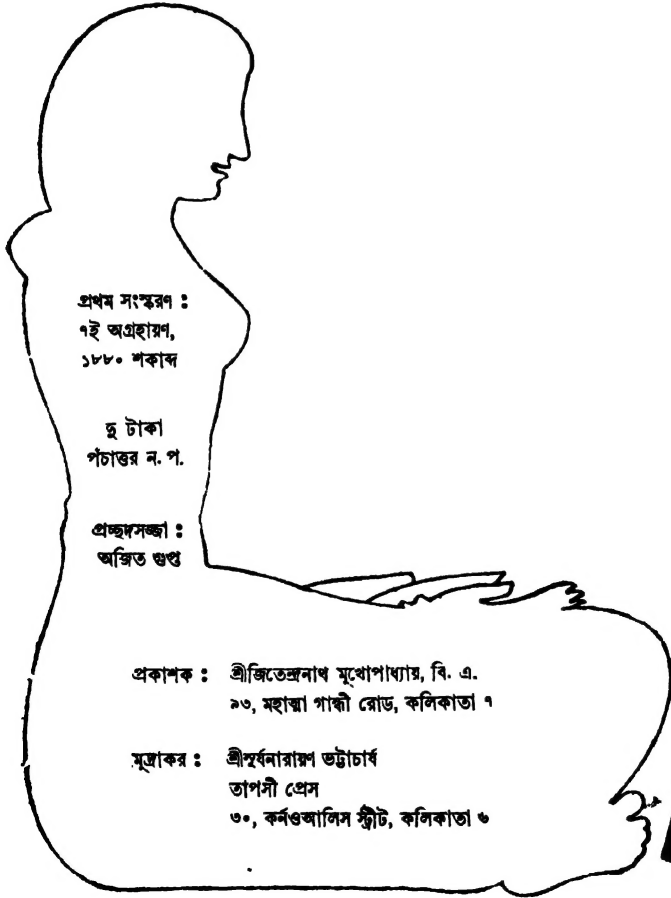 প্রথম সংস্করণ :
৭ই অগ্রহায়ণ,
১৮৮০ শকাব্দ
দু টাকা
পঁচাত্তর ন. প.
প্রচ্ছদসজ্জা :
অজিত গুপ্ত
প্রকাশক : শ্রীজিতেন্দ্রনাথ মুখোপাধ্যায়, বি. এ.
৯৩, মহাত্মা গান্ধী রোড, কলিকাতা ৭
মুদ্রাকর : শ্রীসূর্যনারায়ণ ভট্টাচার্য
তাপসী প্রেস
৩০, কর্নওআলিস স্ট্রীট, কলিকাতা ৬